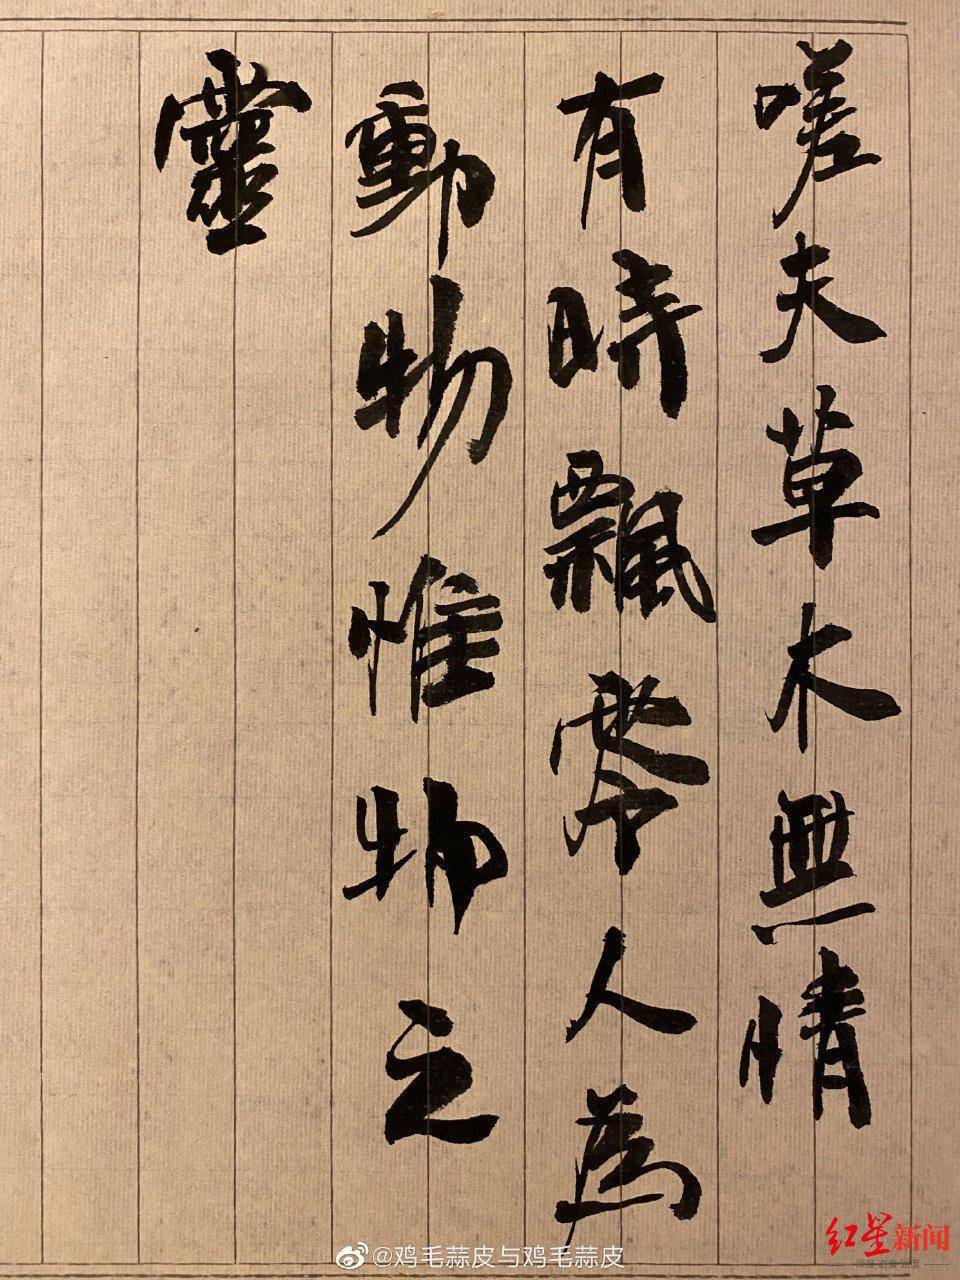 嗟夫草木無情
有時飄零人為
動物惟物之
靈
@鸡毛蒜皮与鸡毛蒜皮
红星新闻